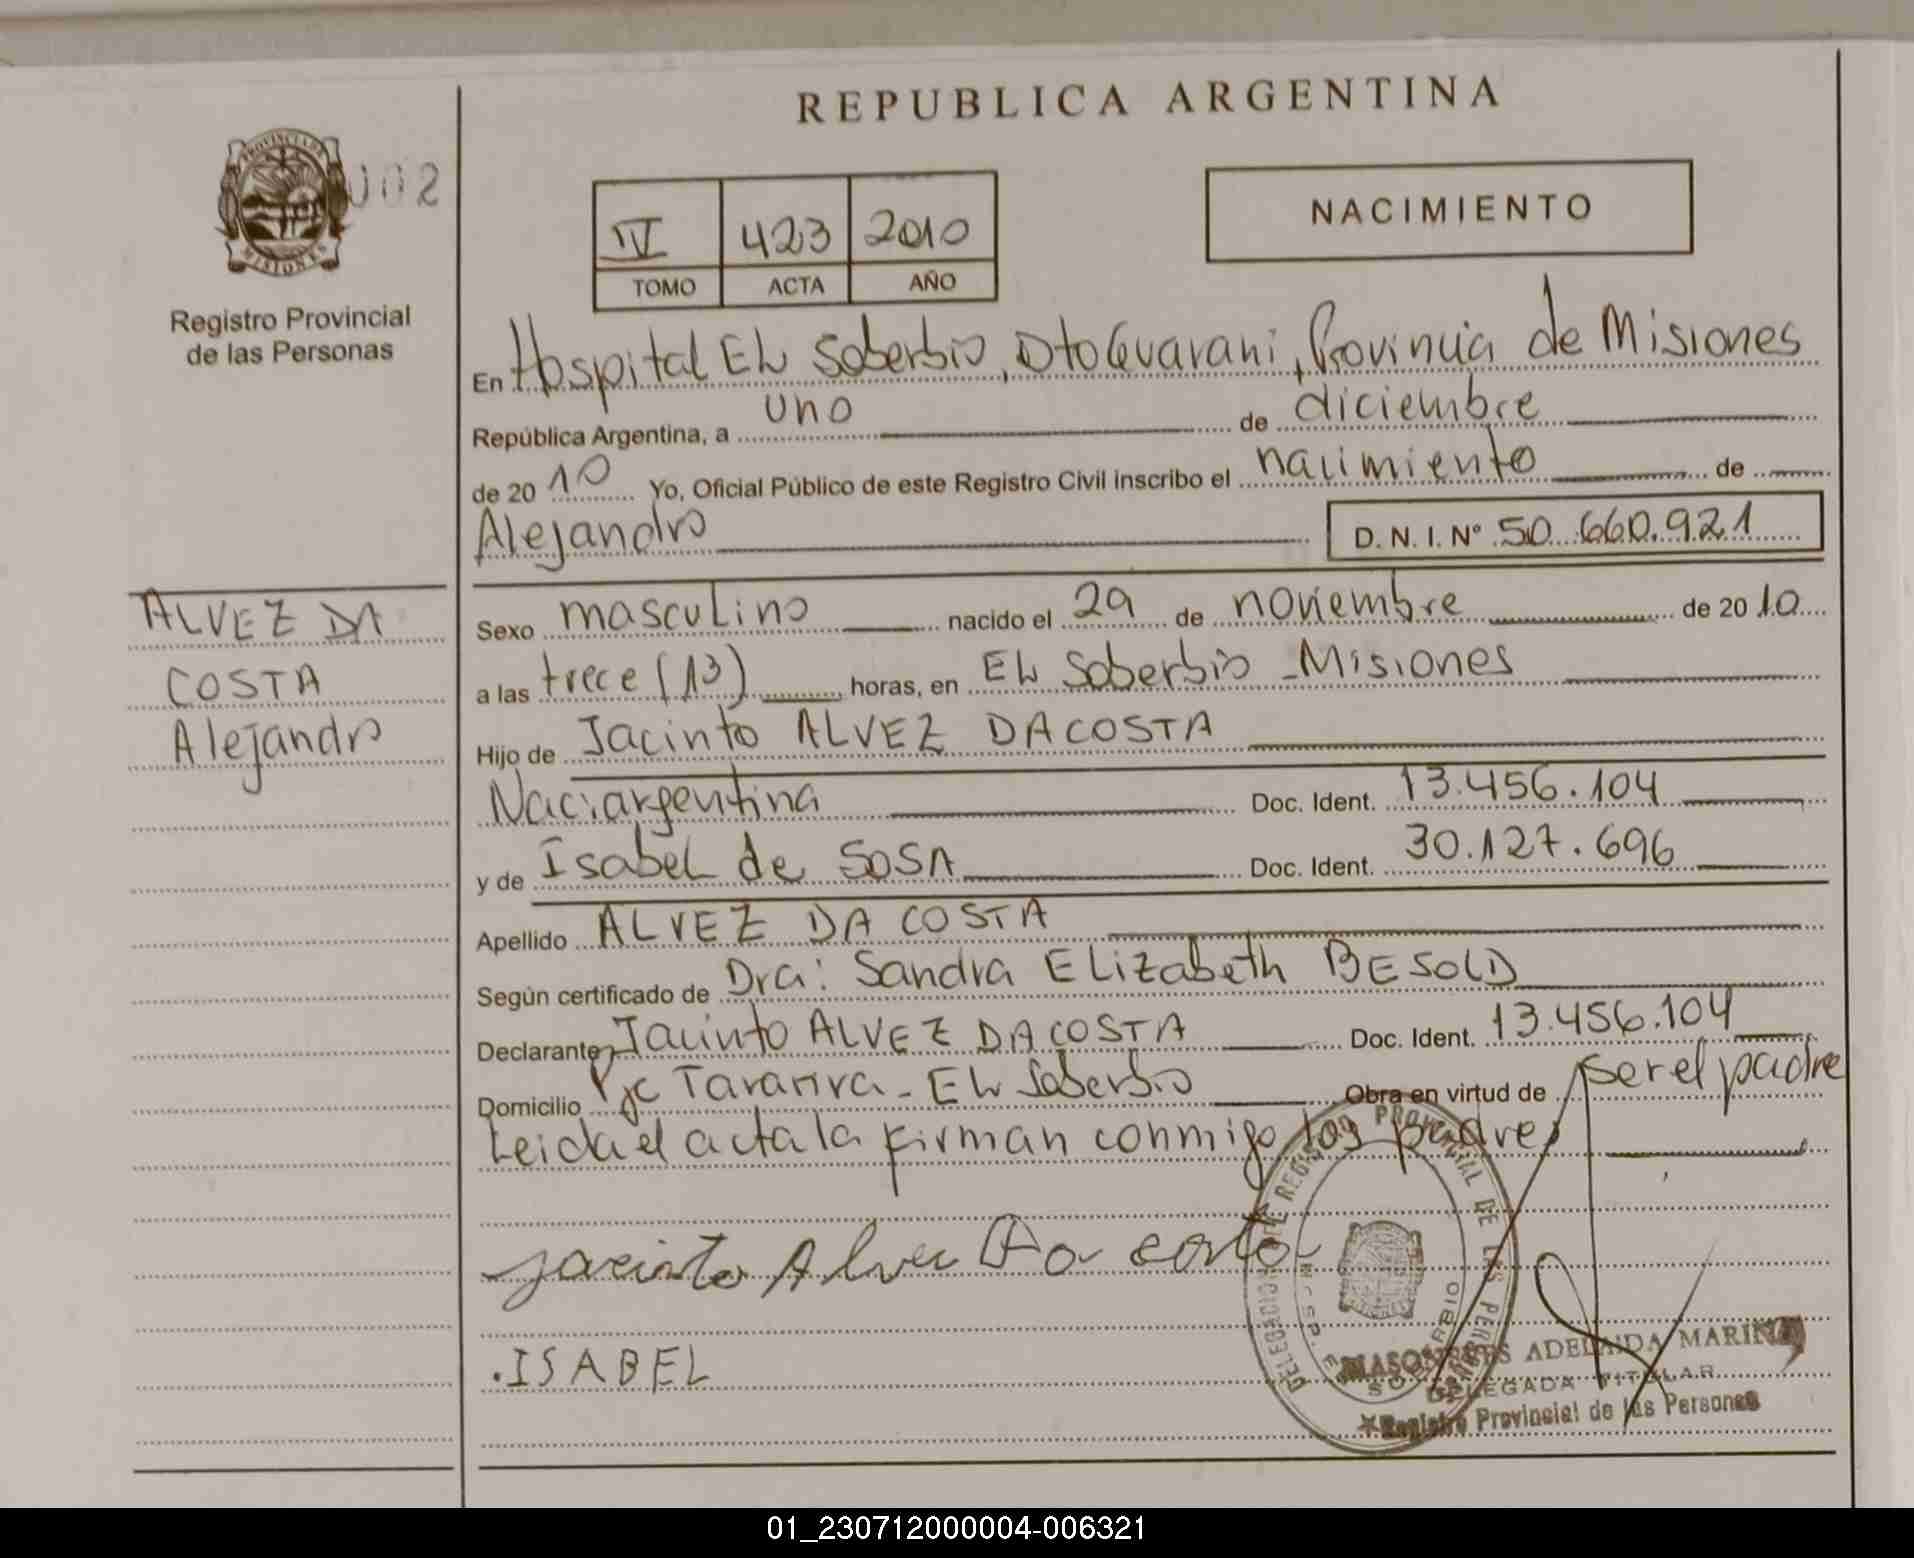 REPUBLICA ARGENTINA
PROVINCIA DE MISIONES
002
Registro Provincial
de las Personas
IV 423 2010
TOMO ACTA AÑO
NACIMIENTO
En Hospital EL Soberbio, Dto Guarani, Provincia de Misiones
República Argentina, a uno de diciembre
de 2010 Yo, Oficial Público de este Registro Civil inscribo el nacimiento de
Alejandro D. N. I. Nº 50.660.921
ALVEZ DA
COSTA
Alejandro
Sexo masculino nacido el 29 de noviembre de 2010
a las trece (13) horas, en EL Soberbio - Misiones
Hijo de Jacinto ALVEZ DA COSTA
Nac: argentina Doc. Ident. 13.456.104
y de Isabel de SOSA Doc. Ident. 30.127.696
Apellido ALVEZ DA COSTA
Según certificado de Dra: Sandra Elizabeth BESOLD
Declarante Jacinto ALVEZ DA COSTA Doc. Ident. 13.456.104
Domicilio Pje Tararira - EL Soberbio Obra en virtud de ser el padre
Leida el acta la firman conmigo los padres
jacinto Alvez Da costa
.ISABEL
DELEGACION DE REGISTRO PROVINCIAL DE LAS PERSONAS
SOBERBIO
ADELAIDA MARINA
DELEGADA TITULAR
Registro Provincial de las Personas
01_230712000004-006321